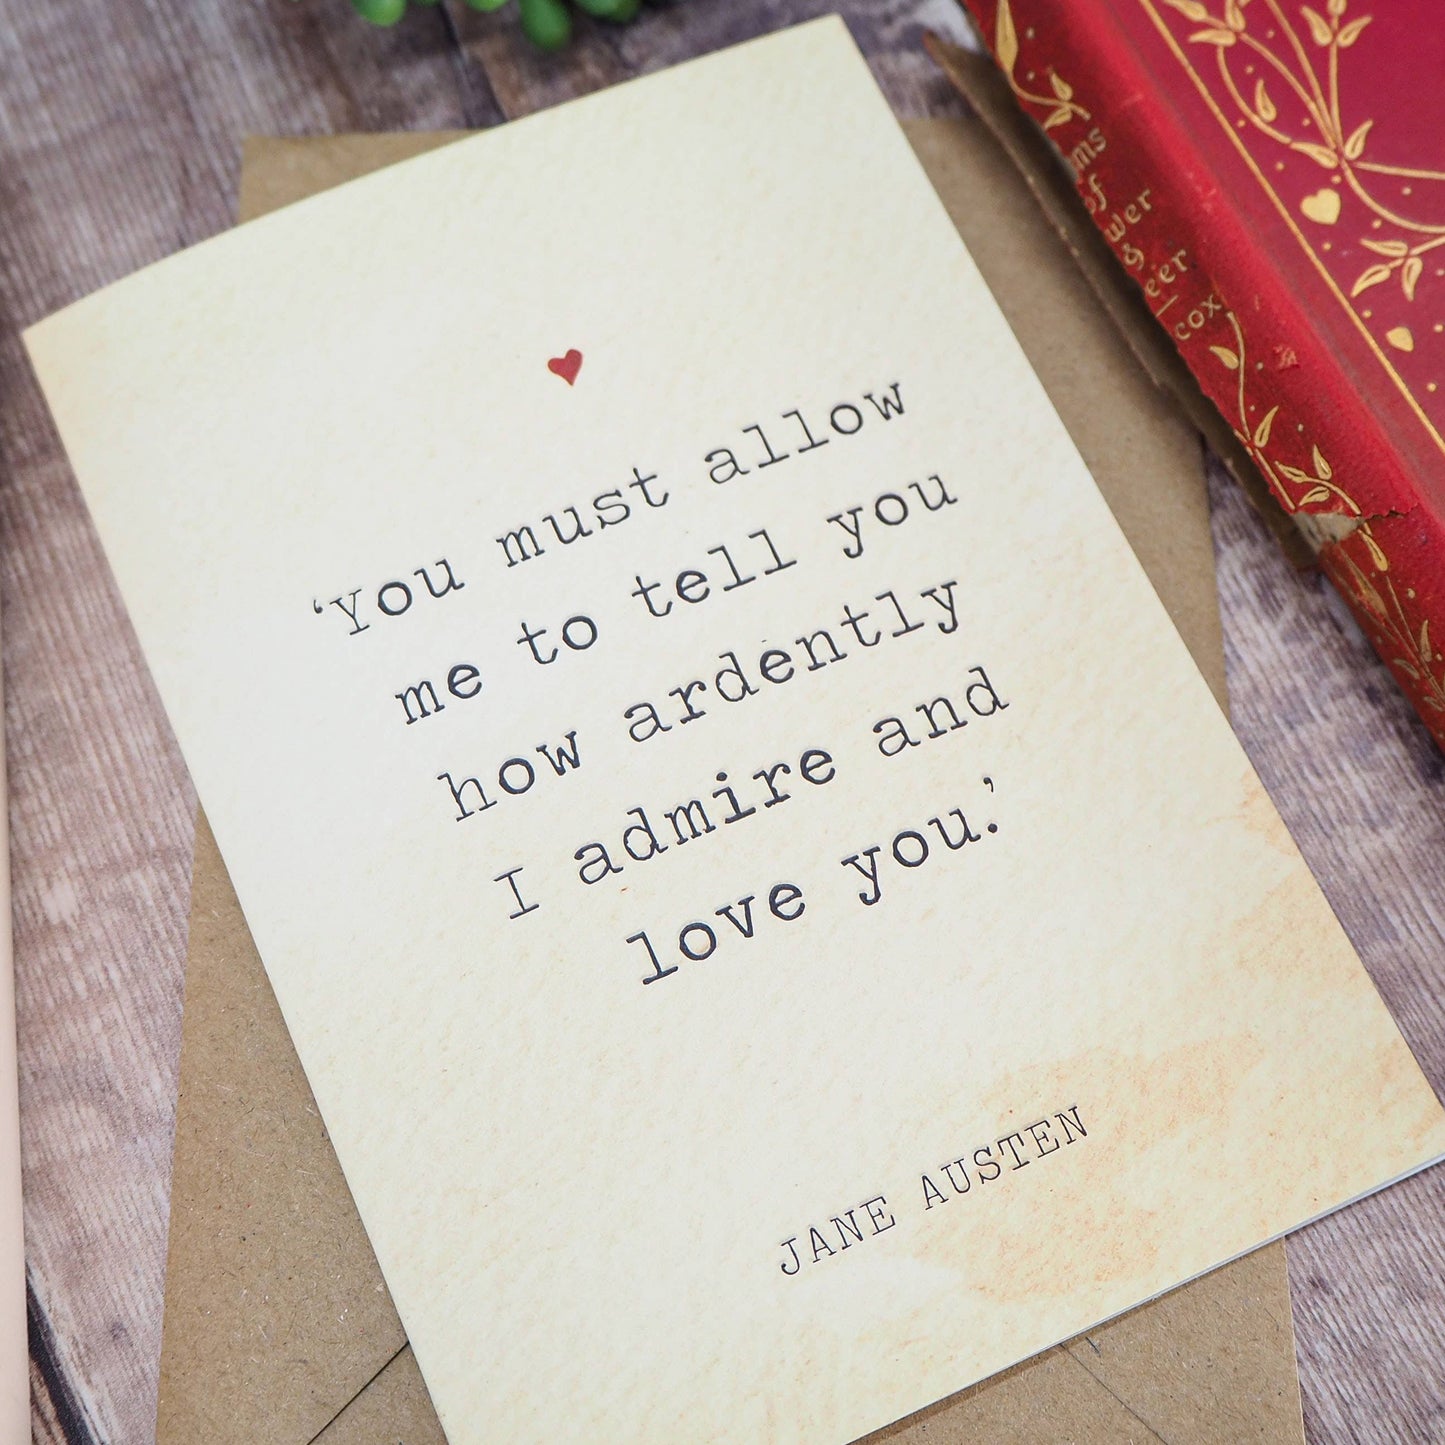 'You must allow
me to tell you
how ardently
I admire and
love you.'
JANE AUSTEN
of
&
cox